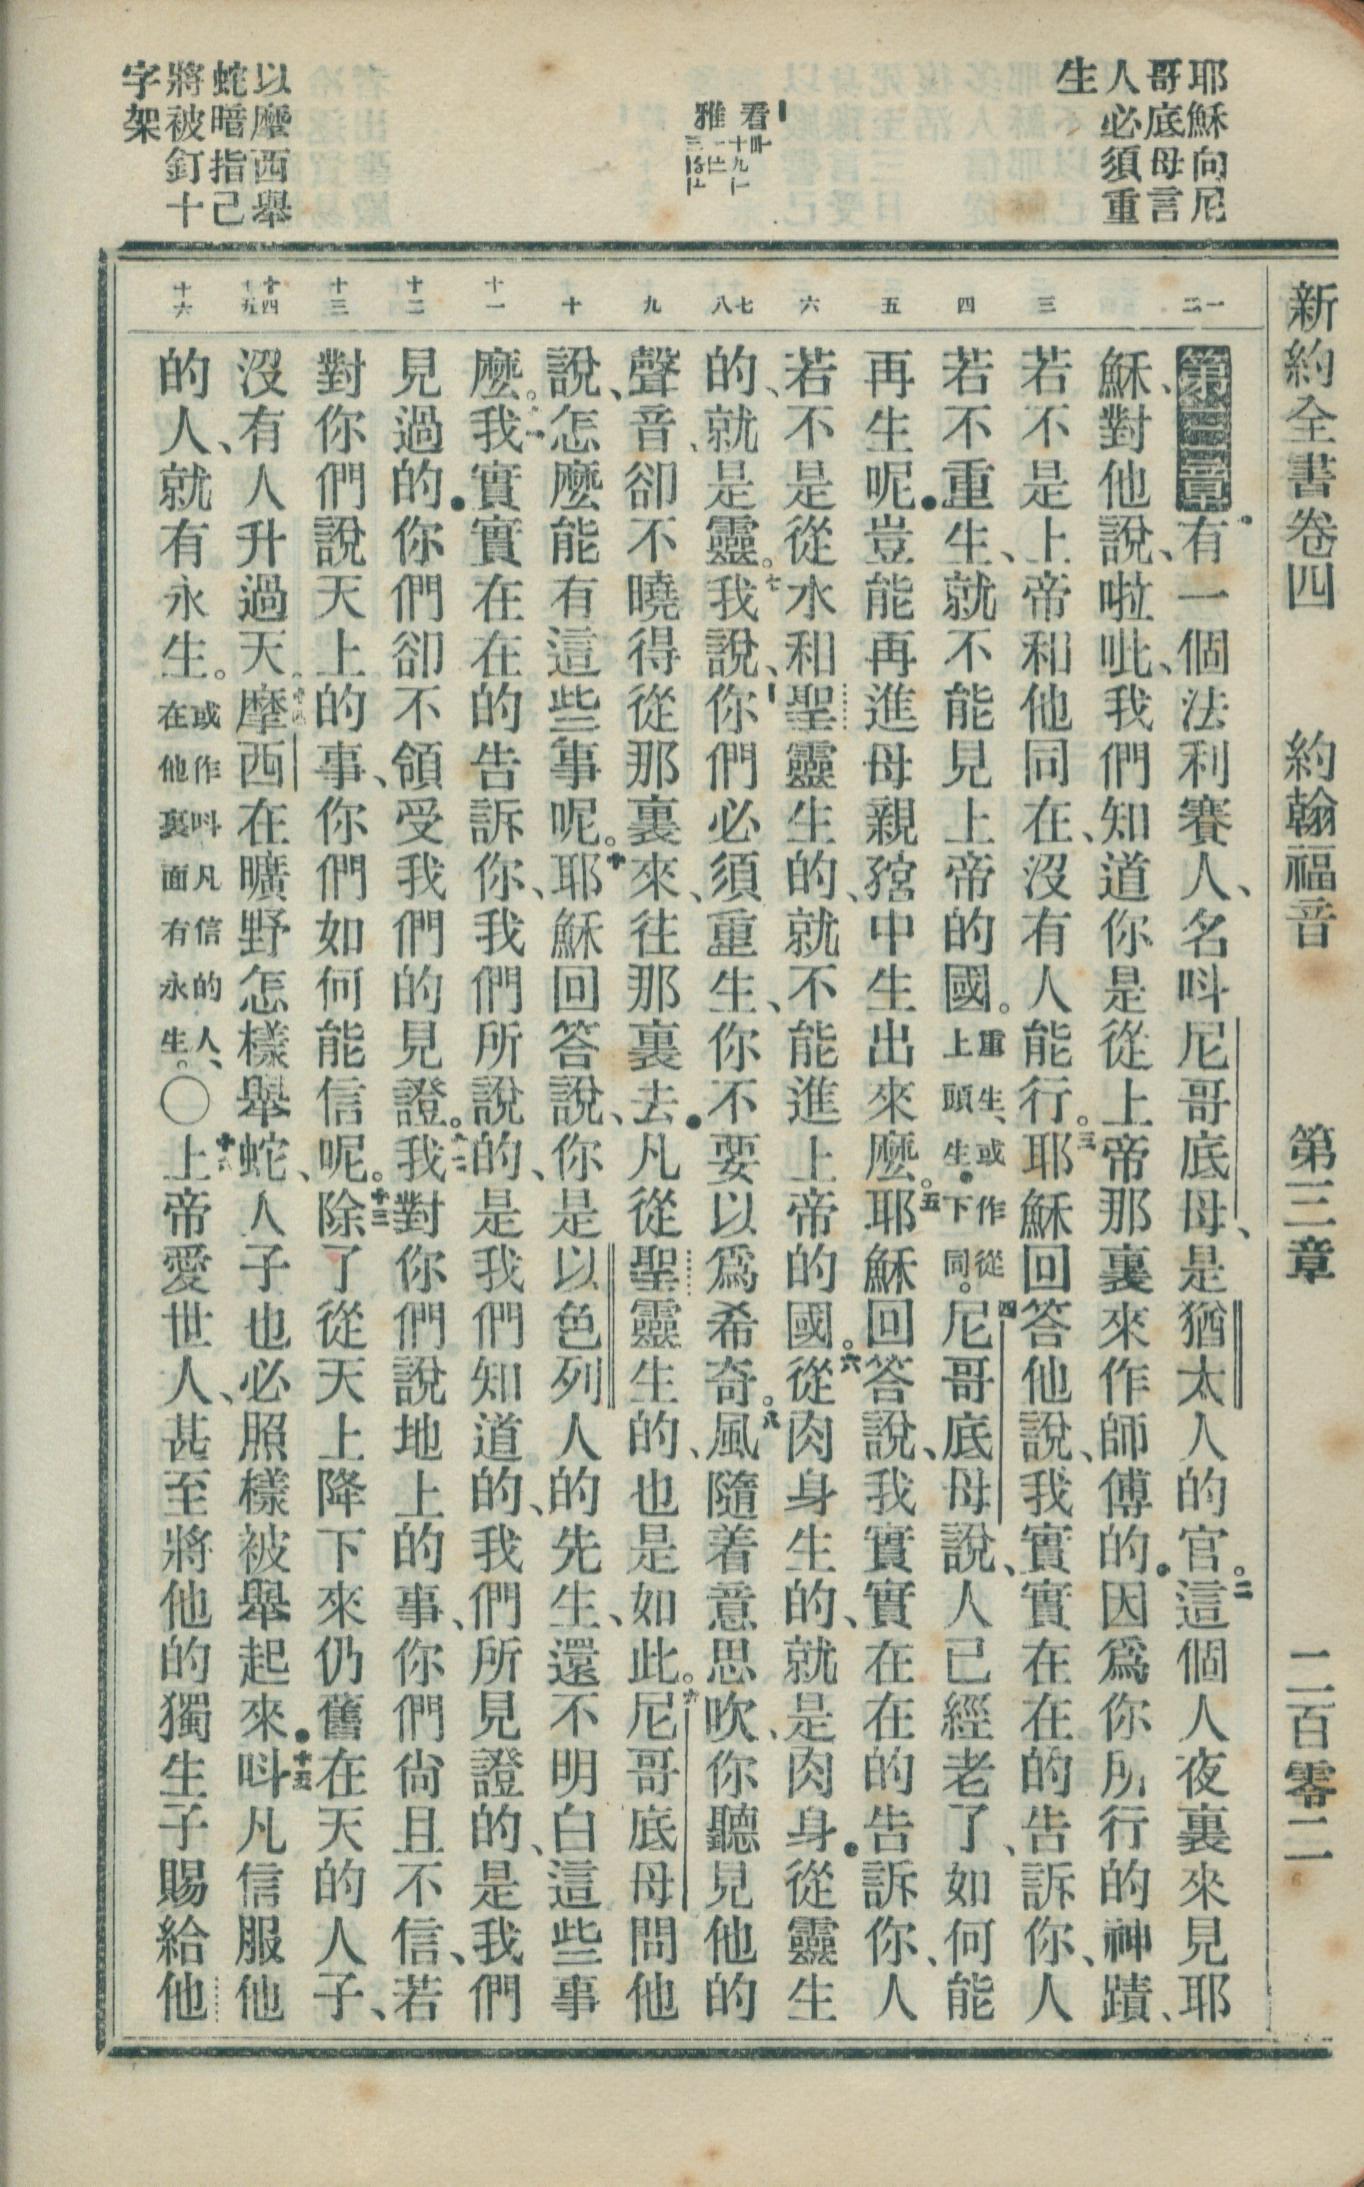 新約全書卷四　約翰福音　第三章　二百零二
耶穌向尼
哥底母言
人必須重
生
看
雅
以摩西舉
蛇暗指己
將被釘十
字架
一二
三
四
五
六
七八
九
十
十一
十二
十三
十四十五
十六
第三章有一個法利賽人、名呌尼哥底母、是猶太人的官。二這個人夜裏來見耶
穌、對他說、啦吡、我們知道你是從上帝那裏來作師傅的．因爲你所行的神蹟、
若不是上帝和他同在、沒有人能行。三耶穌回答他說、我實實在在的告訴你、人
若不重生、就不能見上帝的國。重生、或作從上頭生．下同。四尼哥底母說、人已經老了、如何能
再生呢．豈能再進母親䏴中生出來麼。五耶穌回答說、我實實在在的告訴你、人
若不是從水和聖靈生的、就不能進上帝的國。六從肉身生的、就是肉身．從靈生
的、就是靈。七我說、你們必須重生、你不要以爲希奇。八風隨着意思吹、你聽見他的
聲音、卻不曉得從那裏來、往那裏去．凡從聖靈生的、也是如此。九尼哥底母問他
說、怎麼能有這些事呢。十耶穌回答說、你是以色列人的先生、還不明白這些事
麼。十一我實實在在的告訴你、我們所說的、是我們知道的、我們所見證的、是我們
見過的．你們卻不領受我們的見證。十二我對你們說地上的事、你們尙且不信、若
對你們說天上的事、你們如何能信呢。十三除了從天上降下來仍舊在天的人子、
沒有人升過天。十四摩西在曠野怎樣舉蛇、人子也必照樣被舉起來．十五呌凡信服他
的人、就有永生。或作呌凡信的人、在他裏面有永生。○十六上帝愛世人、甚至將他的獨生子賜給他